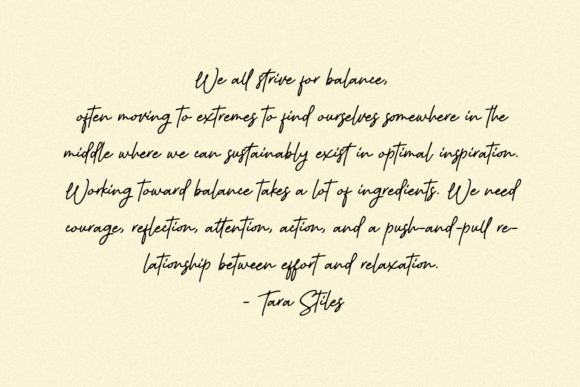 We all strive for balance,
often moving to extremes to find ourselves somewhere in the
middle where we can sustainably exist in optimal inspiration.
Working toward balance takes a lot of ingredients. We need
courage, reflection, attention, action, and a push-and-pull re-
lationship between effort and relaxation.
- Tara Stiles